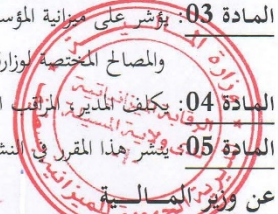 المادة 03: يؤشر على ميزانية المؤس
والمصالح المختصة لوزار
المادة 04: يكلف المدير، المراقب ا
المادة 05: ينشر هذا المقرر في النش
عن وزير المـــالـــية